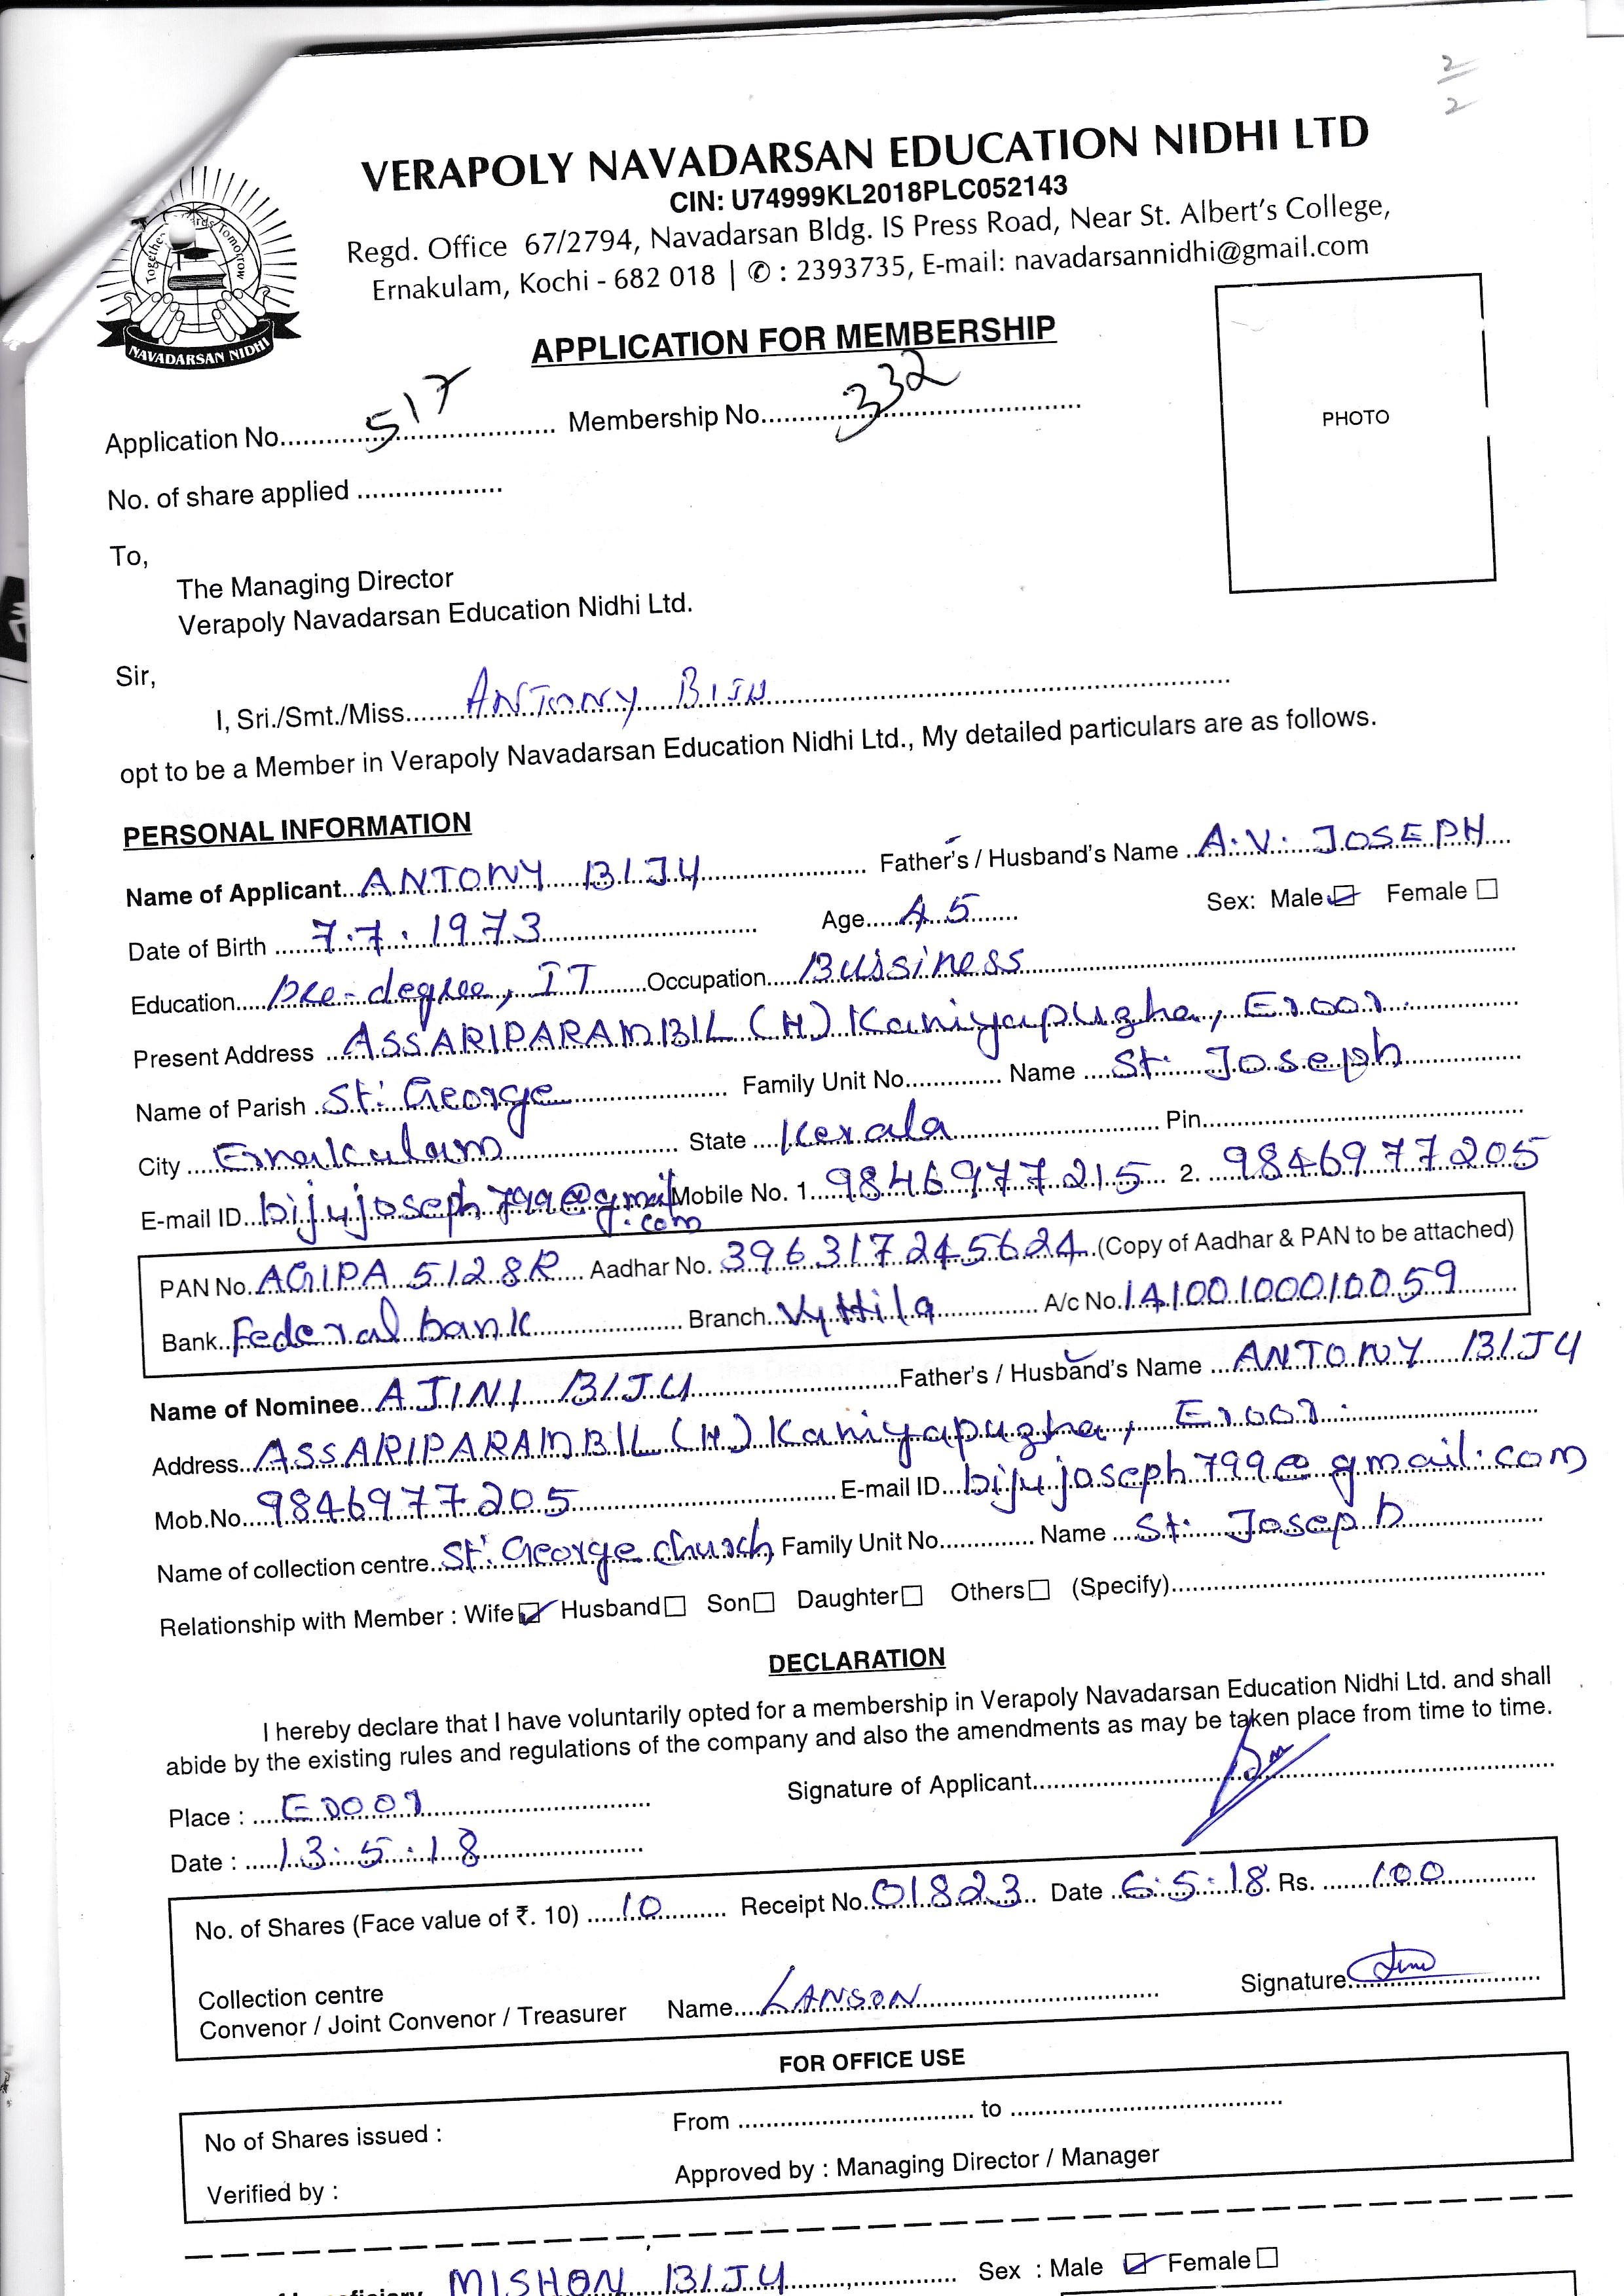 2/2
VERAPOLY NAVADARSAN EDUCATION NIDHI LTD
CIN: U74999KL2018PLC052143
Regd. Office 67/2794, Navadarsan Bldg. IS Press Road, Near St. Albert's College,
Ernakulam, Kochi - 682 018 | ✆ : 2393735, E-mail: navadarsannidhi@gmail.com
NAVADARSAN NIDHI
APPLICATION FOR MEMBERSHIP
PHOTO
Application No. 517 Membership No. 332
No. of share applied
To,
The Managing Director
Verapoly Navadarsan Education Nidhi Ltd.
Sir,
I, Sri./Smt./Miss. ANTONY BIJU
opt to be a Member in Verapoly Navadarsan Education Nidhi Ltd., My detailed particulars are as follows.
PERSONAL INFORMATION
Name of Applicant. ANTONY BIJU Father's / Husband's Name A.V. JOSEPH
Date of Birth 7.7.1973 Age 45 Sex: Male ☑ Female ☐
Education Pre-degree, IT Occupation Bussiness
Present Address ASSARIPARAMBIL (H) Kaniyapuzha, Eroor.
Name of Parish St: George Family Unit No. Name St: Joseph
City Ernakulam State Kerala Pin
E-mail ID bijujoseph799@gmail.com Mobile No. 1. 9846977215 2. 9846977205
PAN No. AGIPA 5128R Aadhar No. 396317245624 (Copy of Aadhar & PAN to be attached)
Bank Federal bank Branch Vyttila A/c No. 14100100010059
Name of Nominee AJINI BIJU Father's / Husband's Name ANTONY BIJU
Address ASSARIPARAMBIL (H) Kaniyapuzha, Eroor.
Mob.No. 9846977205 E-mail ID bijujoseph799@gmail.com
Name of collection centre St: George church Family Unit No. Name St: Joseph
Relationship with Member : Wife ☑ Husband ☐ Son ☐ Daughter ☐ Others ☐ (Specify)
DECLARATION
I hereby declare that I have voluntarily opted for a membership in Verapoly Navadarsan Education Nidhi Ltd. and shall
abide by the existing rules and regulations of the company and also the amendments as may be taken place from time to time.
Signature of Applicant
Place : Eroor
Date : 13.5.18
No. of Shares (Face value of ₹. 10) 10 Receipt No. 01823 Date 6.5.18 Rs. 100
Collection centre
Convenor / Joint Convenor / Treasurer Name LANSON Signature
FOR OFFICE USE
No of Shares issued : From to
Verified by : Approved by : Managing Director / Manager
MISHON BIJU Sex : Male ☑ Female ☐